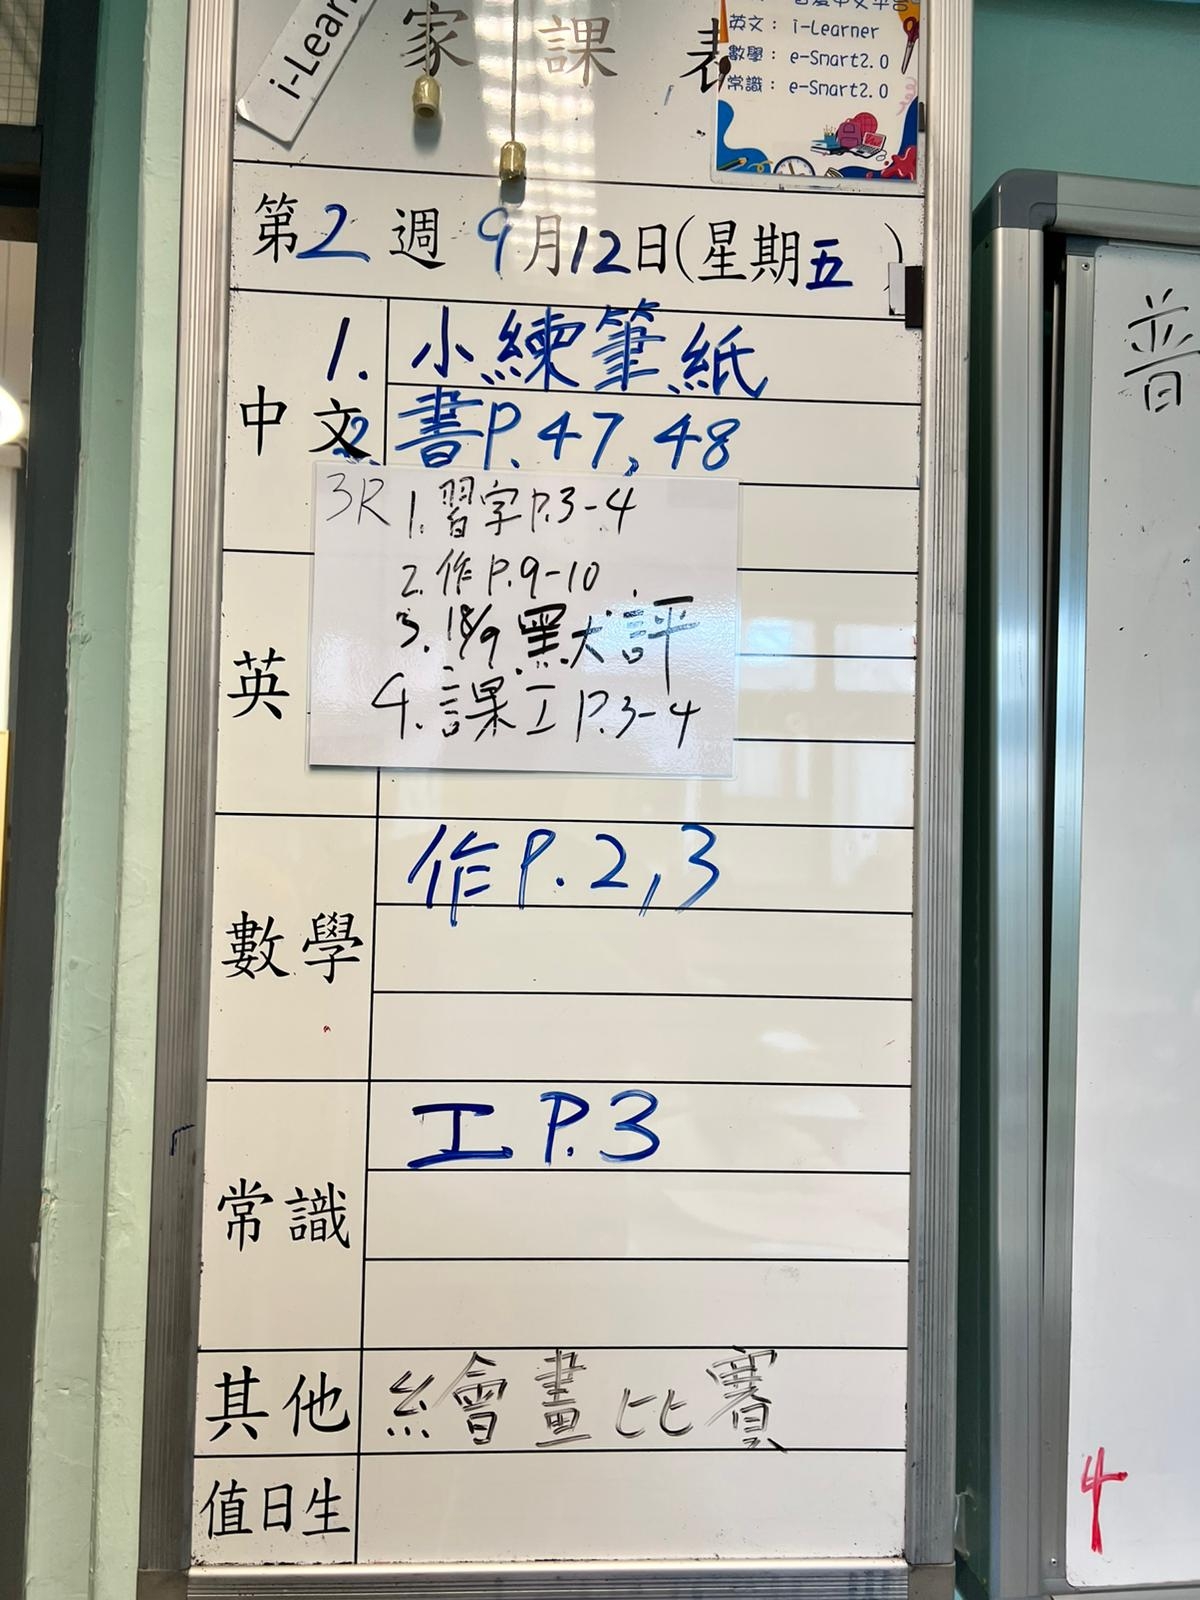 i-Lear
家課表
英文：i-Learner
數學：e-Smart2.0
常識：e-Smart2.0
第2週 9月12日(星期五)
中文
1. 小練筆紙
2. 書P.47,48
3R 1. 習字P.3-4
2. 作P.9-10
3. 18/9 默評
4. 課工P.3-4
英
數學
作P.2,3
常識
工P.3
其他
繪畫比賽
值日生
普
4